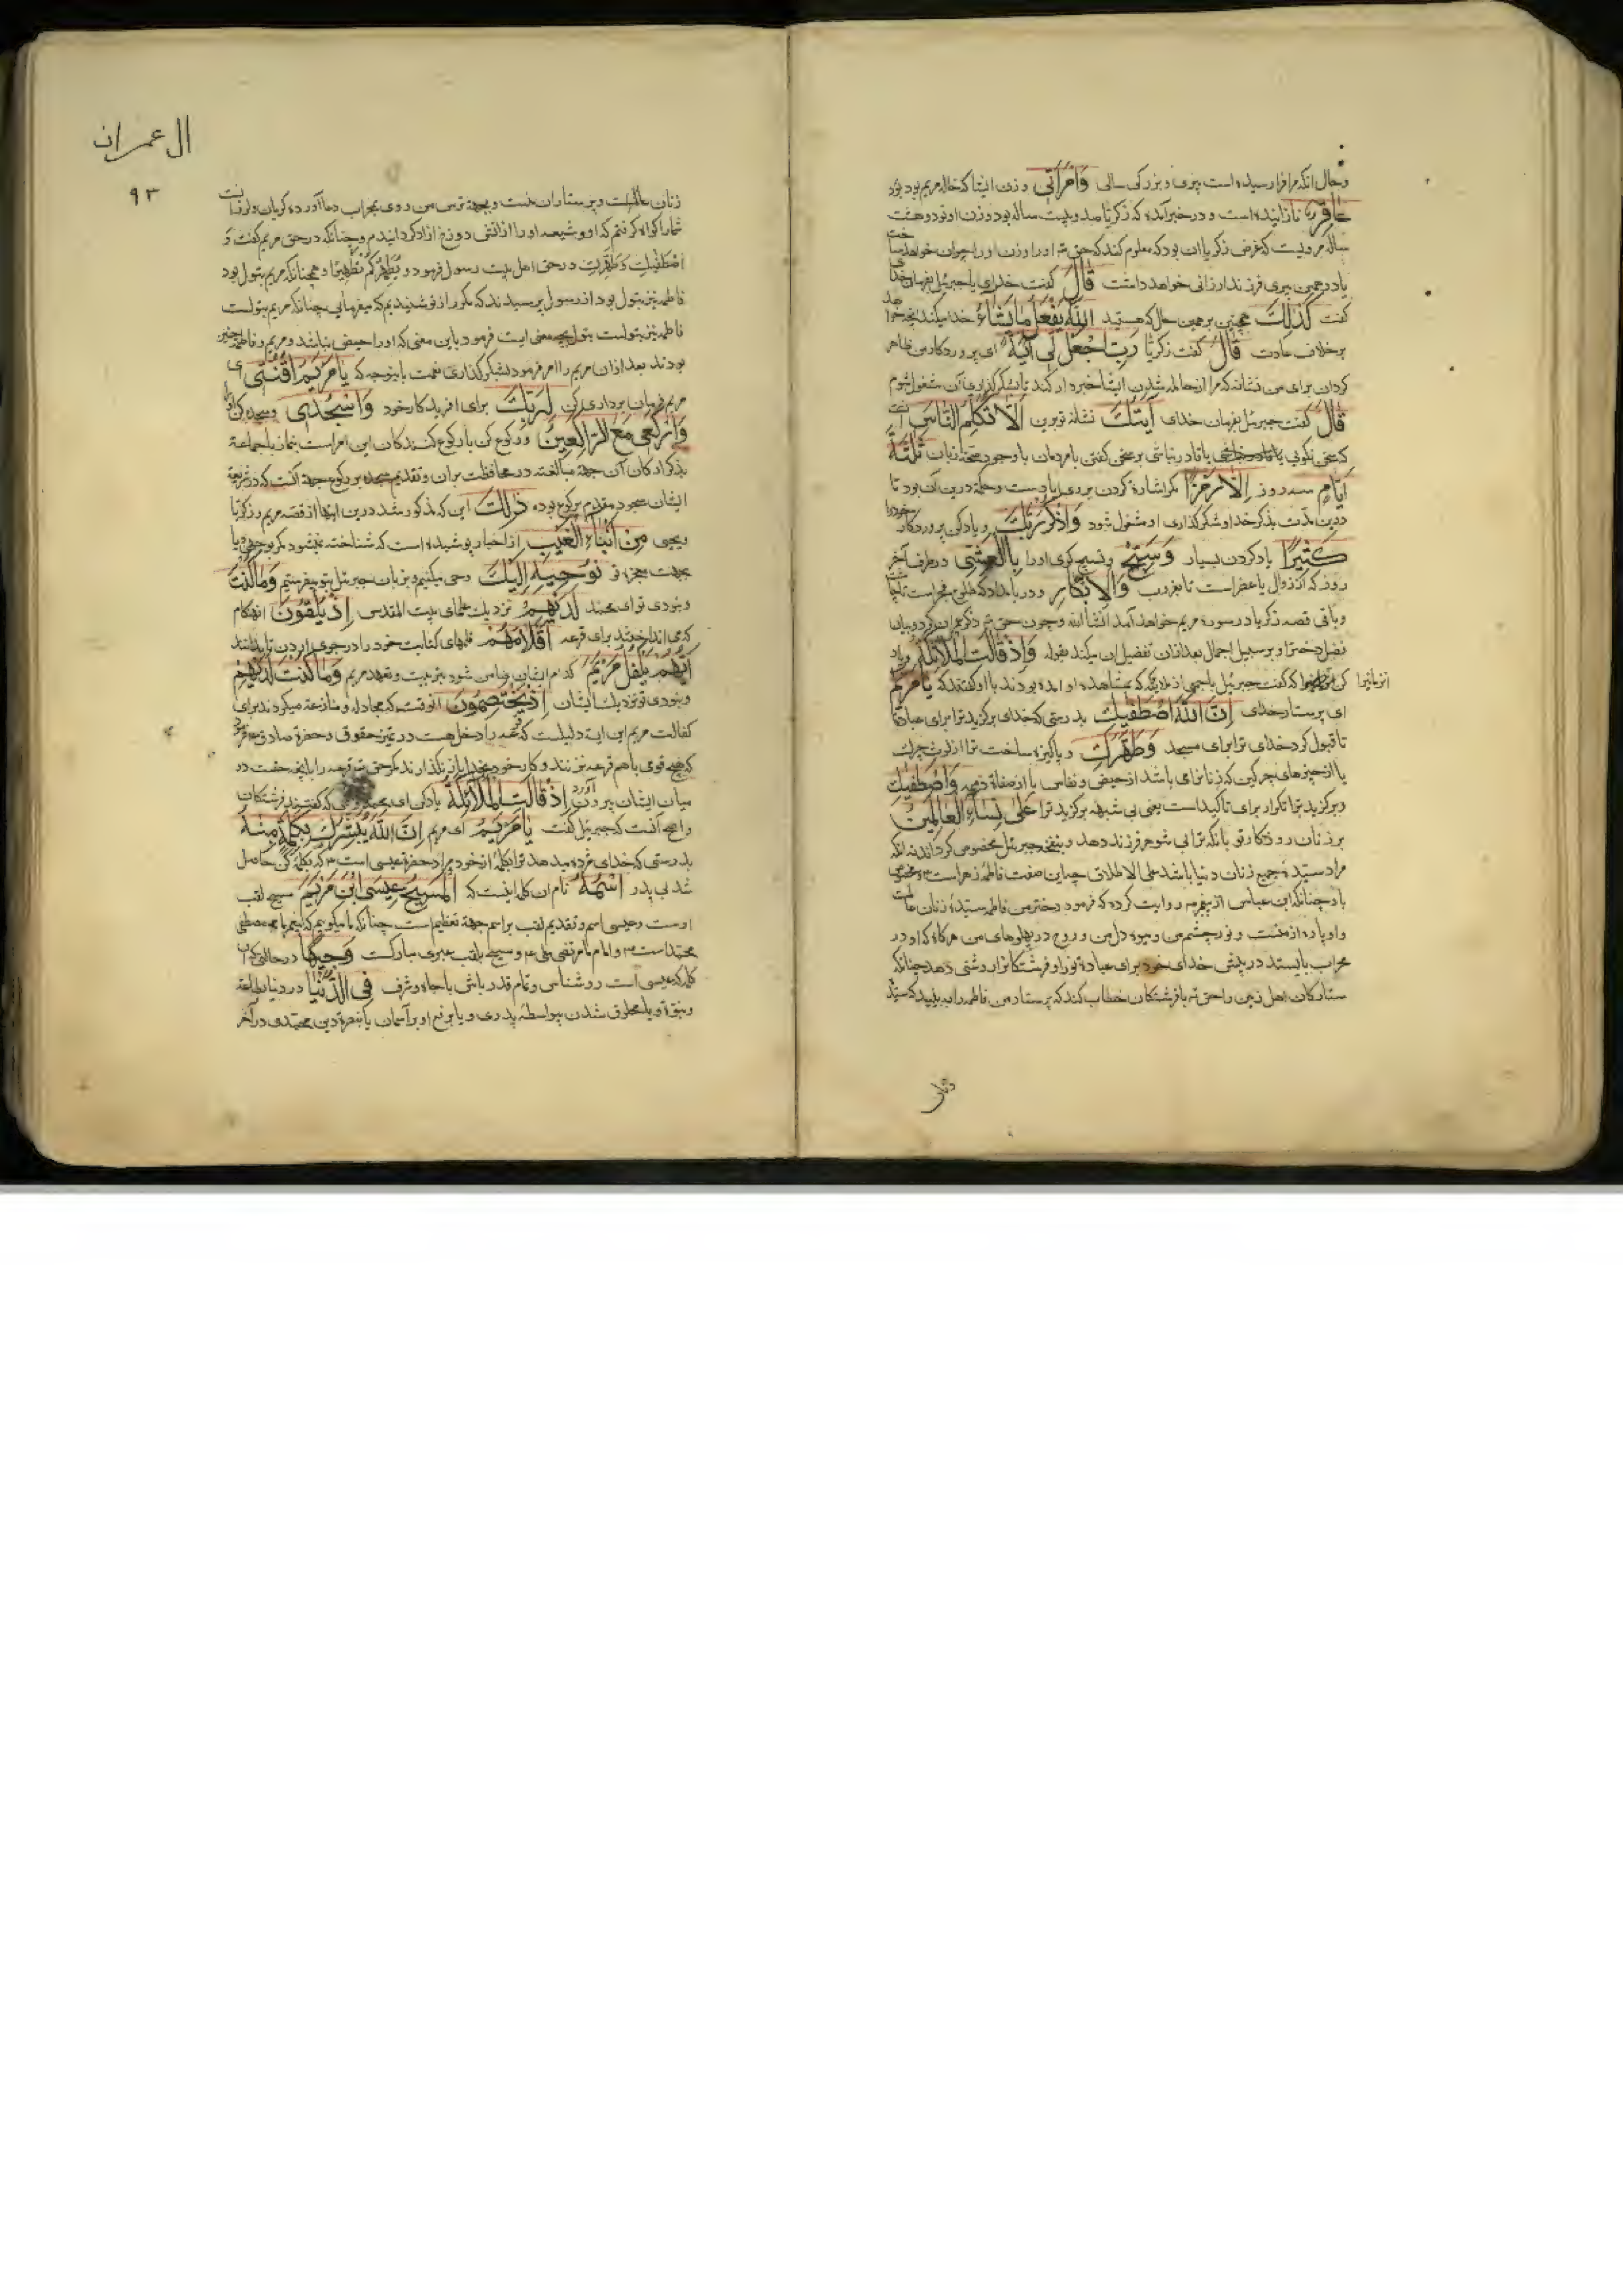 وحال انکه مرا فرارسیده است پیری و بزرکی سالی وَامْرَأَتِی و زن ایشا که خاله مریم بود بود
عَاقِرٌ نازاینده است و در خبر آمده که زکریا صد و بیست ساله بود و زن او نود و هشت
ساله مرویست که غرض زکریا ان بود که معلوم کند که حق تع او را و زن او را جوان خواهد ساخت
یا در همین پیری فرزند ارزانی خواهد داشت قَالَ کفت خدای یا جبرئیل بفرمان خدای
کفت کَذٰلِکَ همچنین بر همین حال که هستید اَللّٰهُ یَفْعَلُ مَا یَشَاءُ خدا میکند انچه خواهد
بر خلاف عادت قَالَ کفت زکریا رَبِّ اجْعَلْ لِی آیَةً ای پروردکار من ظاهر
کردان برای من نشانه که مرا از حامله شدن ایشا خبردار کند تا بشکر کذاری آن مشغول شوم
قَالَ کفت جبرئیل بفرمان خدای آیَتُکَ نشانه تو برین اَلَّا تُکَلِّمَ النَّاسَ آنست
که سخن نکویی یا قادر نباشی بر سخن کفتن با مردمان با وجود صحة زبان ثَلٰثَةَ
اَیَّامٍ سه روز اِلَّا رَمْزًا مکر اشارة کردن بروی یا دست و حکمة درین آن بود تا
درین مدت بذکر خدا و شکر کذاری او مشغول شود وَاذْکُرْ رَبَّکَ و یاد کن پروردکار خود را
کَثِیرًا یاد کردن بسیار وَسَبِّحْ و تسبیح کوی او را بِالْعَشِیِّ در طرف آخر
روز که از زوال یا عصر است تا بغروب وَالْاِبْکَارِ و در بامداد که طلوع فجر است تا چاشت
و باقی قصه زکریا در سوره مریم خواهد آمد انشاء الله و چون حق تع ذکر عمران کرد و بیان
فضل دخترا و بر سبیل اجمال بعد ازان تفصیل ان میکند بقوله وَاِذْ قَالَتِ الْمَلَائِکَةُ و یاد
کن انزمانرا که کفت جبرئیل با جمعی از ملایکه که بمشاهده او امده بودند با او کفتند که یَا مَرْیَمُ
ای پرستار خدای اِنَّ اللّٰهَ اصْطَفٰیکِ بدرستی که خدای برکزید ترا برای عبادة
تا قبول کرد خدای ترا برای مسجد وَطَهَّرَکِ و پاکیزه ساخت ترا از لوث چرک
یا از چیزهای چرکین که زنانرا می باشد از حیض و نفاس یا از صفاة ذمیمه وَاصْطَفٰیکِ
و برکزید ترا تکرار برای تاکید است یعنی بی شبهه برکزید ترا عَلٰی نِسَاءِ الْعَالَمِینَ
بر زنان روزکار تو بانکه ترا بی شوهر فرزند دهد و بنفخه جبرئیل مخصوص کرداند نه انکه
مراد سیدة جمیع زنان دنیا باشد علی الاطلاق چه این صفت فاطمه زهراست مخصوص
باو چنانکه ابن عباس از پیغمبر روایت کرده که فرمود دختر من فاطمه سیدة زنان عالمست
و او پاره از منست و نور چشم من و میوه دل من و روح در پهلوهای من هرکاه که او در
محراب بایستد در پیش خدای خود برای عبادة نور او فرشتکانرا روشنی دهد چنانکه
ستارکان اهل زمین را حق تع با فرشتکان خطاب کند که پرستار من فاطمه را ببینید که سیدة
زنان
ال عمران
۹۳
زنان عالمست و پرستاران منست و بجهة ترس من روی بمحراب دعا آورده کریان و لرزانست
شمارا کواه کرفتم که او و شیعه او را از اتش دوزخ ازاد کردانیدم و چنانکه در حق مریم کفت وَ
اصْطَفٰیکِ وَطَهَّرَکِ در حق اهل بیت رسول فرمود وَیُطَهِّرَکُمْ تَطْهِیرًا و همچنانکه مریم بتول بود
فاطمه نیز بتول بود از رسول پرسیدند که مکرر از تو شنیدیم که میفرمایی چنانکه مریم بتولست
فاطمه نیز بتولست بتول بچه معنی ایست فرمود باین معنی که او را حیض نباشد و مریم و فاطمه چنین
بودند بعد ازان مریم را امر فرمود بشکر کذاری نعمت باینوجه که یَا مَرْیَمُ اقْنُتِی ای
مریم فرمان برداری کن لِرَبِّکِ برای افریدکار خود وَاسْجُدِی و سجده کن او را
وَارْکَعِی مَعَ الرَّاکِعِینَ و رکوع کن با رکوع کنندکان این امر است بنماز با جماعة
بذکر ارکان آن جهة مبالغه در محافظت بران و تقدیم سجده بر رکوع جهة آنست که در شریعة
ایشان سجود مقدم بر رکوع بوده ذٰلِکَ این که مذکور شد درین اینها از قصه مریم و زکریا
و یحیی مِنْ اَنْبَاءِ الْغَیْبِ از اخبار پوشیده است که شناخته نمیشود مکر بوحی و یا
بجهت معجزه تو نُوحِیهِ اِلَیْکَ وحی میکنیم و بزبان جبرئیل بتو میفرستیم وَمَا کُنْتَ
و نبودی تو ای محمد لَدَیْهِمْ نزدیک علمای بیت المقدس اِذْ یُلْقُونَ انهنکام
که می انداختند برای قرعه اَقْلَامَهُمْ قلمهای کتابت خود را در جوی اردن تا بدانند
اَیُّهُمْ یَکْفُلُ مَرْیَمَ کدام ایشان ضامن شود بتربیت و تعهد مریم وَمَا کُنْتَ لَدَیْهِمْ
و نبودی تو نزدیک ایشان اِذْ یَخْتَصِمُونَ انوقت که مجادله و منازعة میکردند برای
کفالت مریم این ایت دلیلست که قرعه را دخل هست در تمیز حقوق و حضرة صادق ع فرمود
که هیچ قومی با هم قرعه نزنند و کار خود بخدا باز نکذارند مکر حق تع قرعه را بانچه حقست در
میان ایشان بیرون آورد اِذْ قَالَتِ الْمَلَائِکَةُ یاد کن ای محمد که کفتند فرشتکان
و اصح آنست که جبرئیل کفت یَا مَرْیَمُ ای مریم اِنَّ اللّٰهَ یُبَشِّرُکِ بِکَلِمَةٍ مِنْهُ
بدرستی که خدای مژده میدهد ترا بکلمه از خود مراد حضرة عیسی است ع که بکلمه کن حاصل
شد بی پدر اسْمُهُ نام ان کلمه اینست که الْمَسِیحُ عِیسَی ابْنُ مَرْیَمَ مسیح لقب
اوست و عیسی اسم و تقدیم لقب بر اسم جهة تعظیم است چنانکه ما میکوییم که پیغمبر ما مصطفی
محمد است ص و امام ما مرتضی علی ع و مسیح بلقب عبری مبارکست وَجِیهًا در حالتی که ان
کلمه که عیسی است روشناس و تمام قدر باش با جاه و شرف فِی الدُّنْیَا در دنیا بطاعة
و نبوة و یا مخلوق شدن بیواسطه پدری و یا برفع او بر آسمان یا بنصرة دین محمدی در آخر